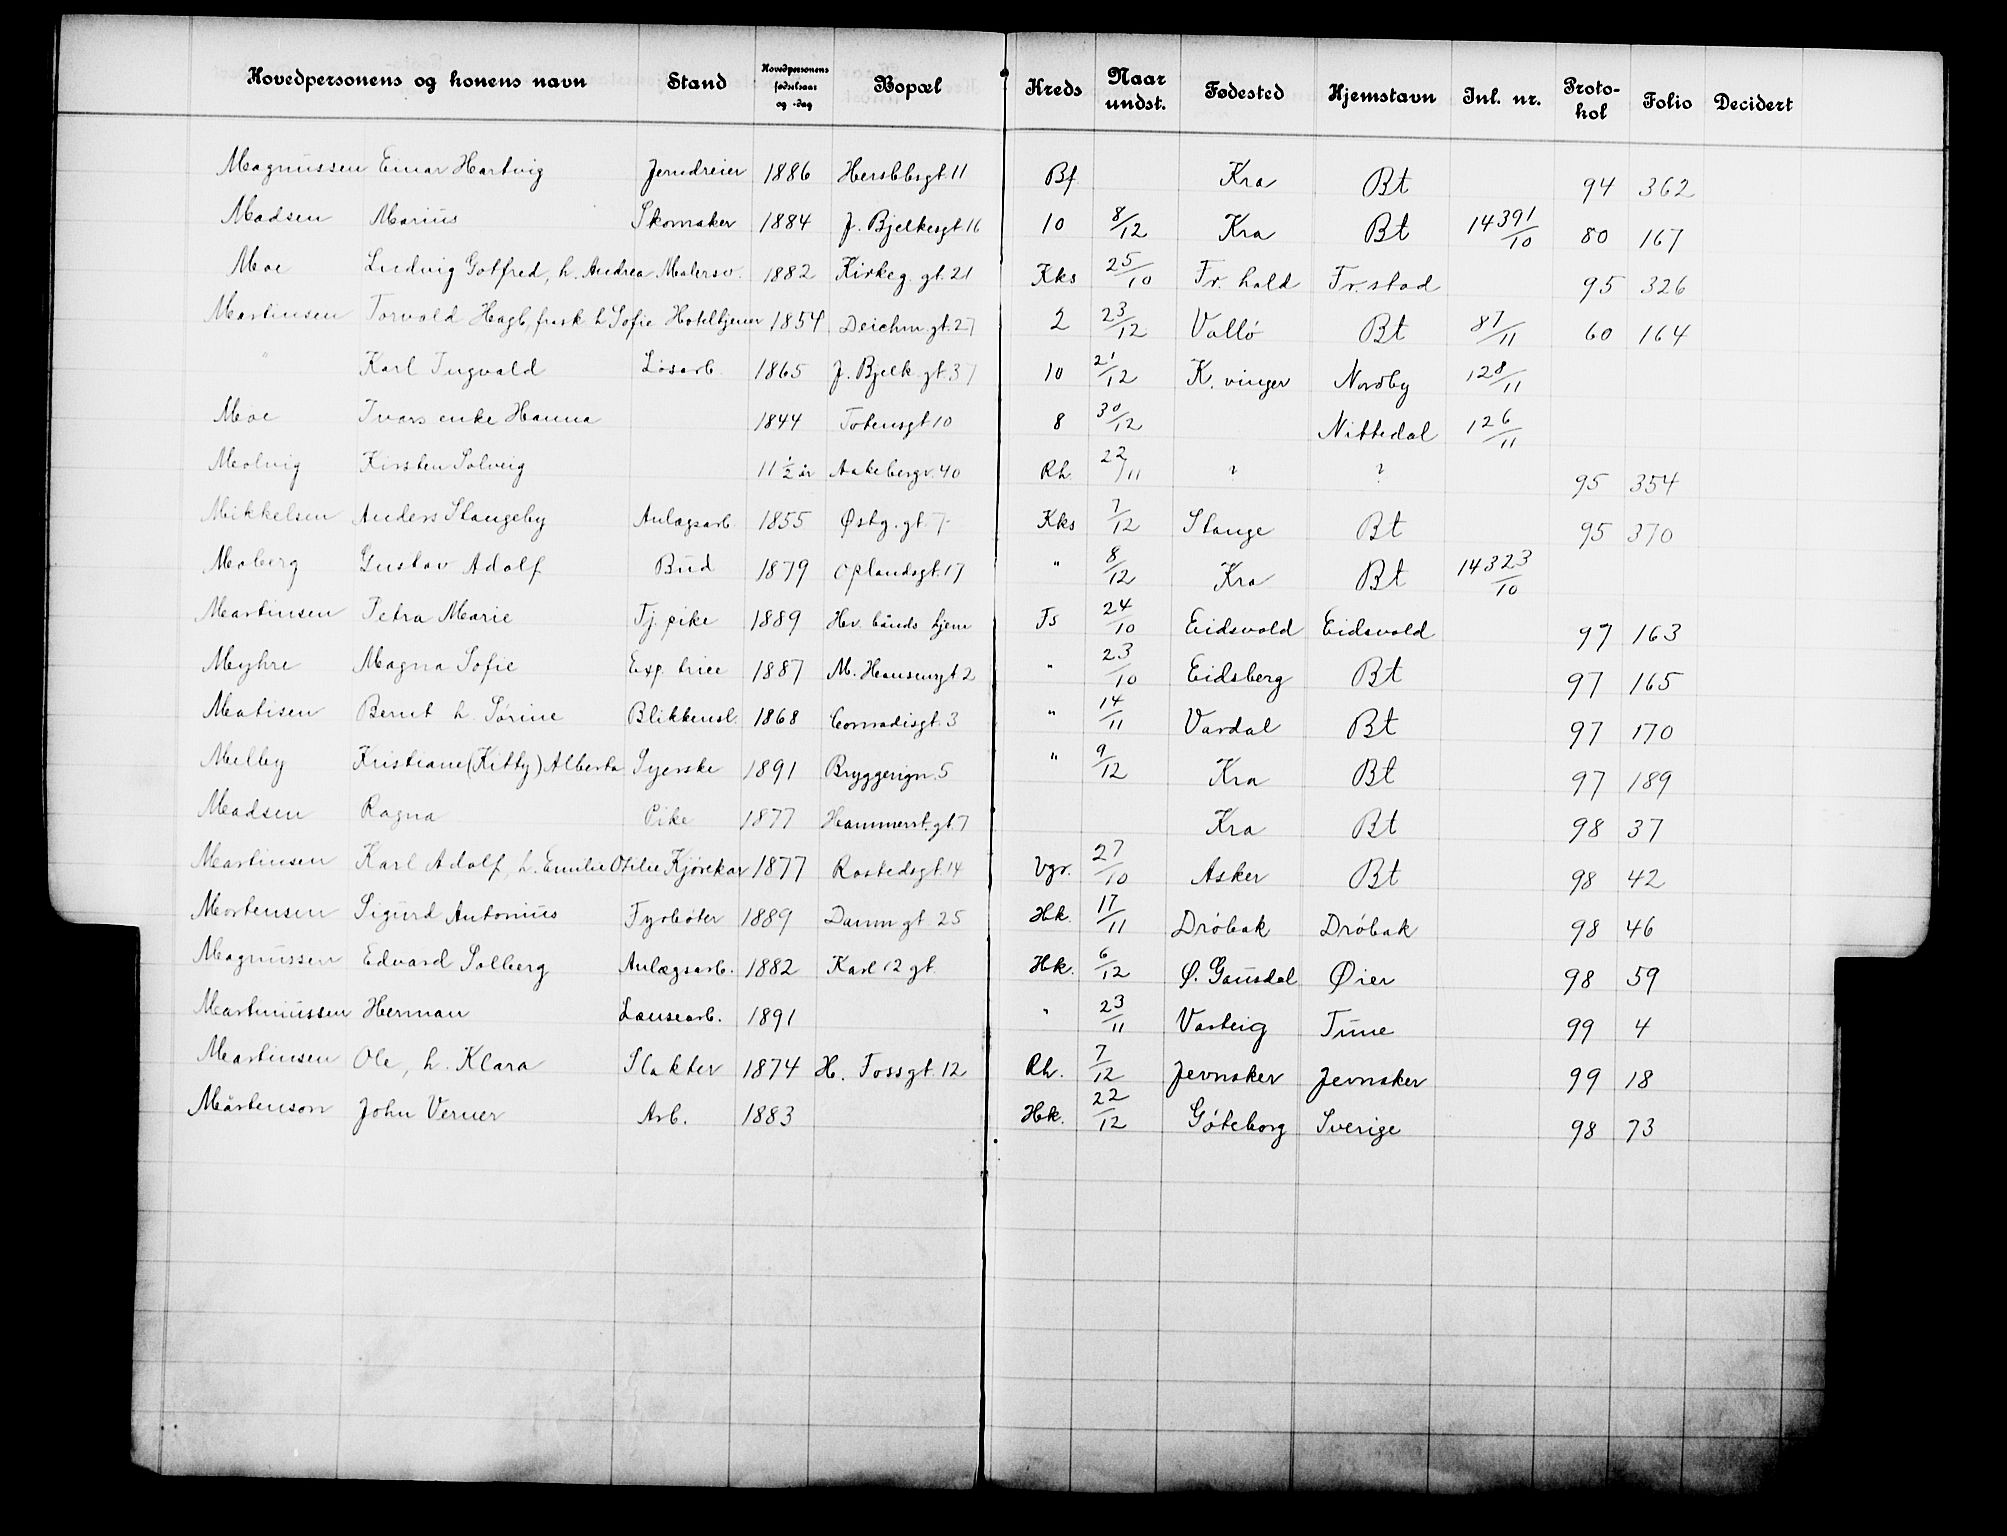 Hovedpersonens og konens navn Stand Hovedpersonens fødselsaar og -dag Bopæl Kreds Naar undst. Fødested Hjemstavn Inl. nr. Proto-kol Folio Decidert
Magnussen Einar Hartvig Jerndreier 1886 Herslebsgt 11 Bf Kra Bt 94 362
Madsen Marius Skomaker 1884 J. Bjelkesgt 16 10 8/12 Kra Bt 14391/10 80 167
Moe Ludvig Gotfred, h. Andrea Malersv. 1882 Kirkeg. gt. 21 Kks 25/10 Fr. hald Fr. stad 95 326
Martinsen Torvald Hagb. h Sofie Hoteltjener 1854 Deichm. gt. 27 2 23/12 Vallö Bt 87/11 60 164
" Karl Ingvald Løsarb. 1865 J. Bjelk. gt. 37 10 21/12 K. vinger Nordby 128/11
Moe Ivars enke Hanna 1844 Totensgt 10 8 30/12 Nittedal 126/11
Molvig Kirsten Solveig 11 1/2 år Aakebergv. 40 Rh 22/11 ? ? 95 354
Mikkelsen Anders Stangeby Anlægsarb. 1855 Østg. gt. 7 Kks 7/12 Stange Bt 95 370
Moberg Gustav Adolf Bud 1879 Oplandsgt. 17 " 8/12 Kra Bt 14323/10
Martinsen Petra Marie Tj. pike 1889 Hv. bånds hjem Fs 24/10 Eidsvold Eidsvold 97 163
Myhre Magna Sofie Exp. trice 1887 M. Hansensgt 2 " 23/10 Eidsberg Bt 97 165
Matisen Bernt h. Sörine Blikkensl. 1868 Conradisgt. 3 " 14/11 Vardal Bt 97 170
Melby Kristiane (Kitty) Alberta Syerske 1891 Bryggerign. 5 " 9/12 Kra Bt 97 189
Madsen Ragna Pike 1877 Hammerst. gt. 7 Kra Bt 98 37
Martinsen Karl Adolf, h. Emilie Otilie Kjørekar 1877 Rostedsgt. 14 Vgr. 27/10 Asker Bt 98 42
Mortensen Sigurd Antonius Fyrbøter 1889 Danm gt. 25 Hk. 17/11 Dröbak Dröbak 98 46
Magnussen Edvard Solberg Anlægsarb. 1882 Karl 12 gt. Hk. 6/12 Ø. Gausdal Øier 98 59
Martiniussen Herman Lausearb. 1891 " 23/11 Varteig Tune 99 4
Martinsen Ole, h. Klara Slakter 1874 H. Fossgt. 12 Rh. 7/12 Jevnaker Jevnaker 99 18
Mårtenson John Verner Arb. 1883 Hk. 22/12 Göteborg Sverige 98 73